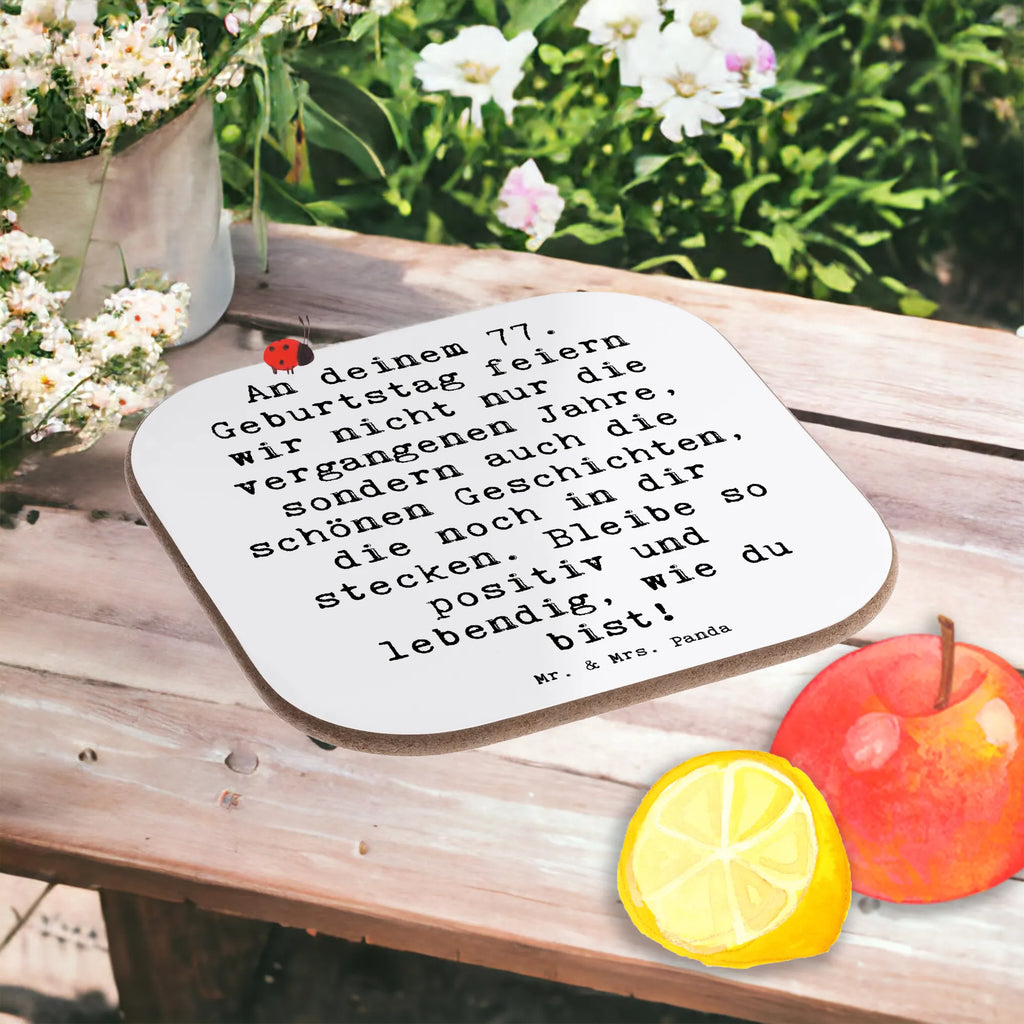 An deinem 77.
Geburtstag feiern
wir nicht nur die
vergangenen Jahre,
sondern auch die
schönen Geschichten,
die noch in dir
stecken. Bleibe so
positiv und
lebendig, wie du
bist!
Mr. & Mrs. Panda